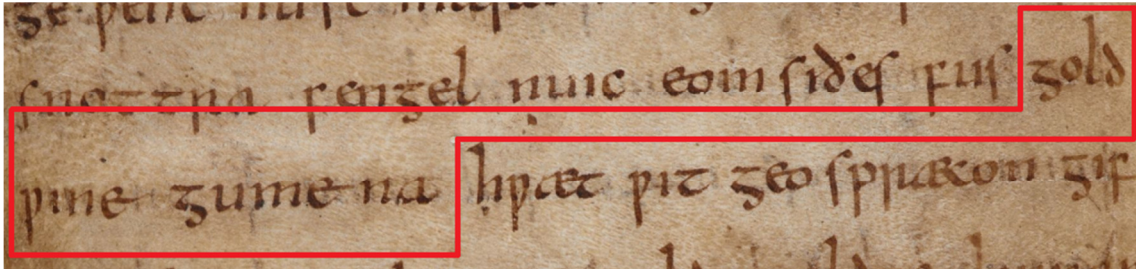 ge þenc nu se
snottra fengel nu ic eom siðes fus gold
ƿine gumena hƿæt ƿit geo spræcon gif